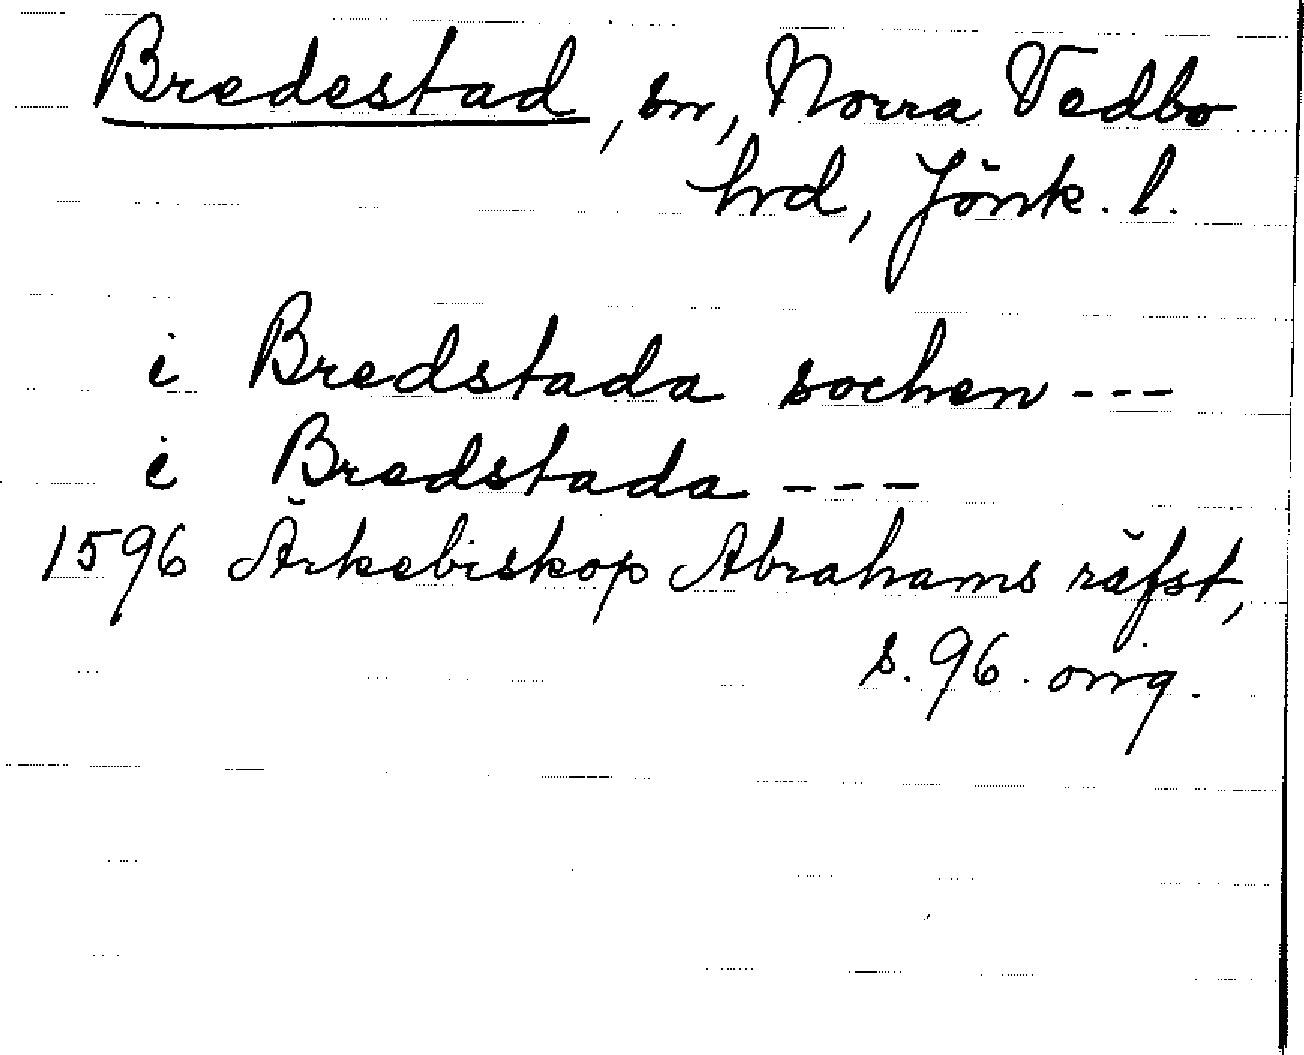 Bredestad, sn, Norra Vedbo
hrd, Jönk. l.
i Bredstada sochen ---
i Bredstada ---
1596 Ärkebiskop Abrahams räfst,
s. 96. orig.